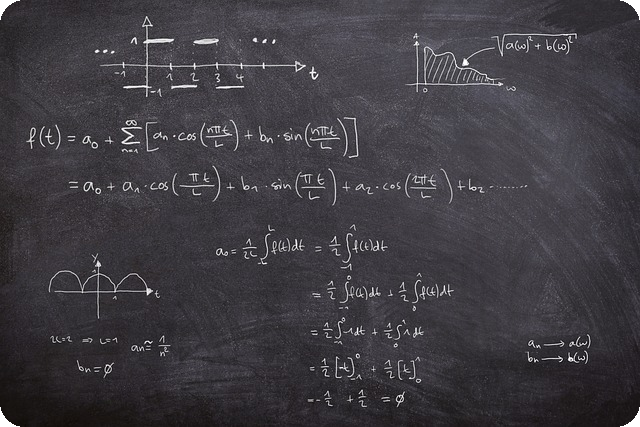 ... 1 ...
-1 1 2 3 4 t
-1
A √(a(ω)² + b(ω)²)
0 ω
f(t) = a₀ + ∑ₙ₌₁^∞ [aₙ·cos(nπt/L) + bₙ·sin(nπt/L)]
= a₀ + a₁·cos(πt/L) + b₁·sin(πt/L) + a₂·cos(2πt/L) + b₂........
a₀ = 1/2L ∫₋L^L f(t)dt = 1/2 ∫₋₁^1 f(t)dt
= 1/2 ∫₋₁^0 f(t)dt + 1/2 ∫₀^1 f(t)dt
= 1/2 ∫₋₁^0 -1dt + 1/2 ∫₀^1 1dt
= 1/2 [-t]₋₁^0 + 1/2 [t]₀^1
= -1/2 + 1/2 = ∅
y
1
1 t
2L=2 ⇒ L=1 aₙ≅ 1/n²
bₙ=∅
aₙ → a(ω)
bₙ → b(ω)